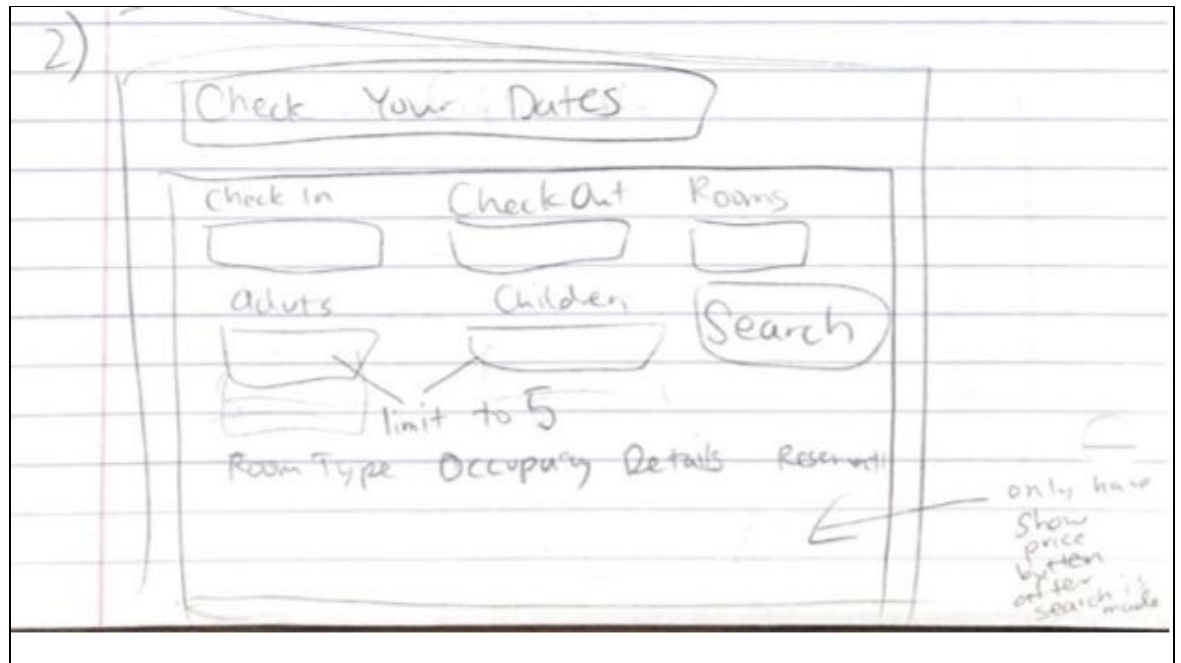 2)
Check Your Dates
Check In Check Out Rooms
aduts Children
Search
limit to 5
Room Type Occupancy Details Reservati
only have
show
price
button
after
search is
made